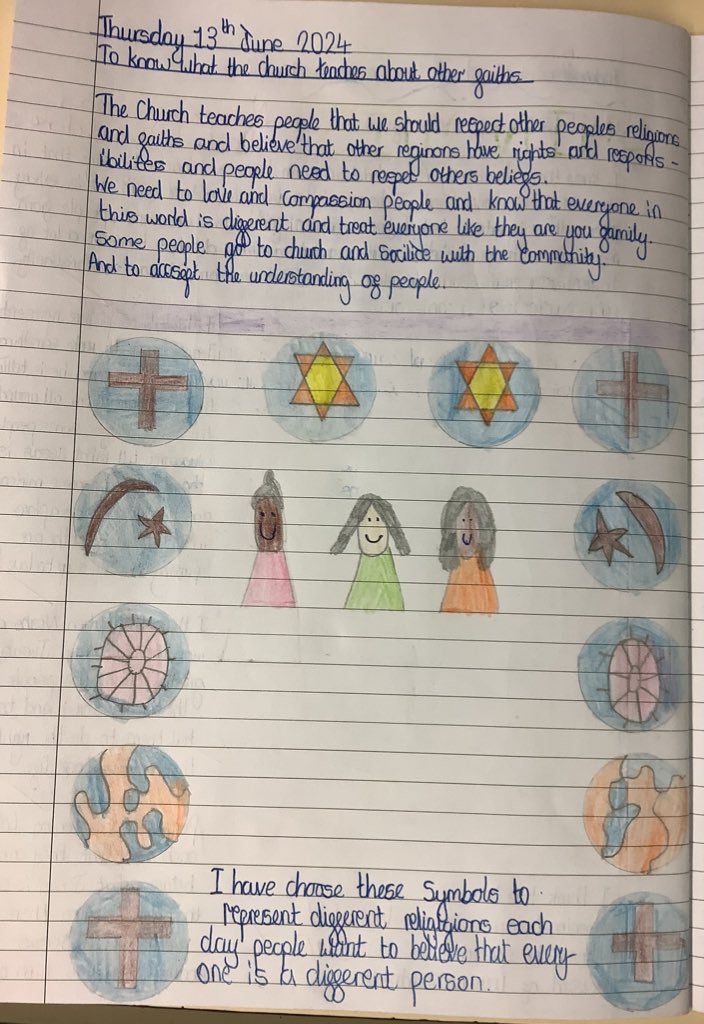 Thursday 13th June 2024
To know what the church teaches about other gaiths
The Church teaches people that we should respect other peoples religions
and gaiths and believe that other reginons have rights and respons-
ibilites and people need to respet others beliegs.
We need to love and compassion people and know that everyone in
this world is digerent and treat everyone like they are you gamily.
Some people go to church and socilide with the community.
And to accsept the understanding og people.
I have choose these symbols to
represent diggerent religigions each
day people want to believe that every-
one is a diggerent person.